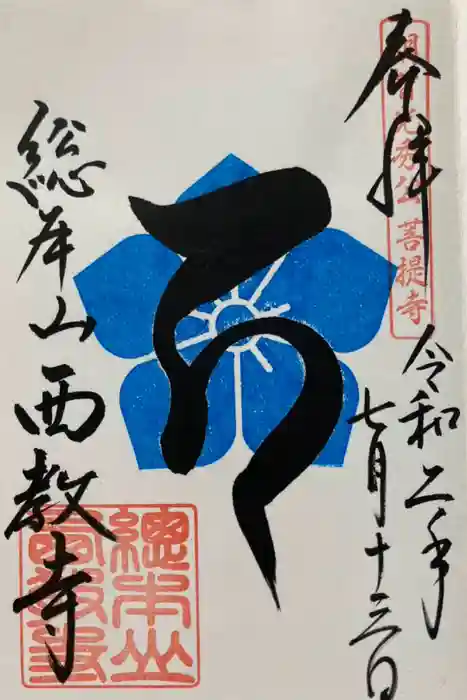 奉拝
明智光秀公 菩提寺
令和二年
七月十三日
総本山西教寺
總本山